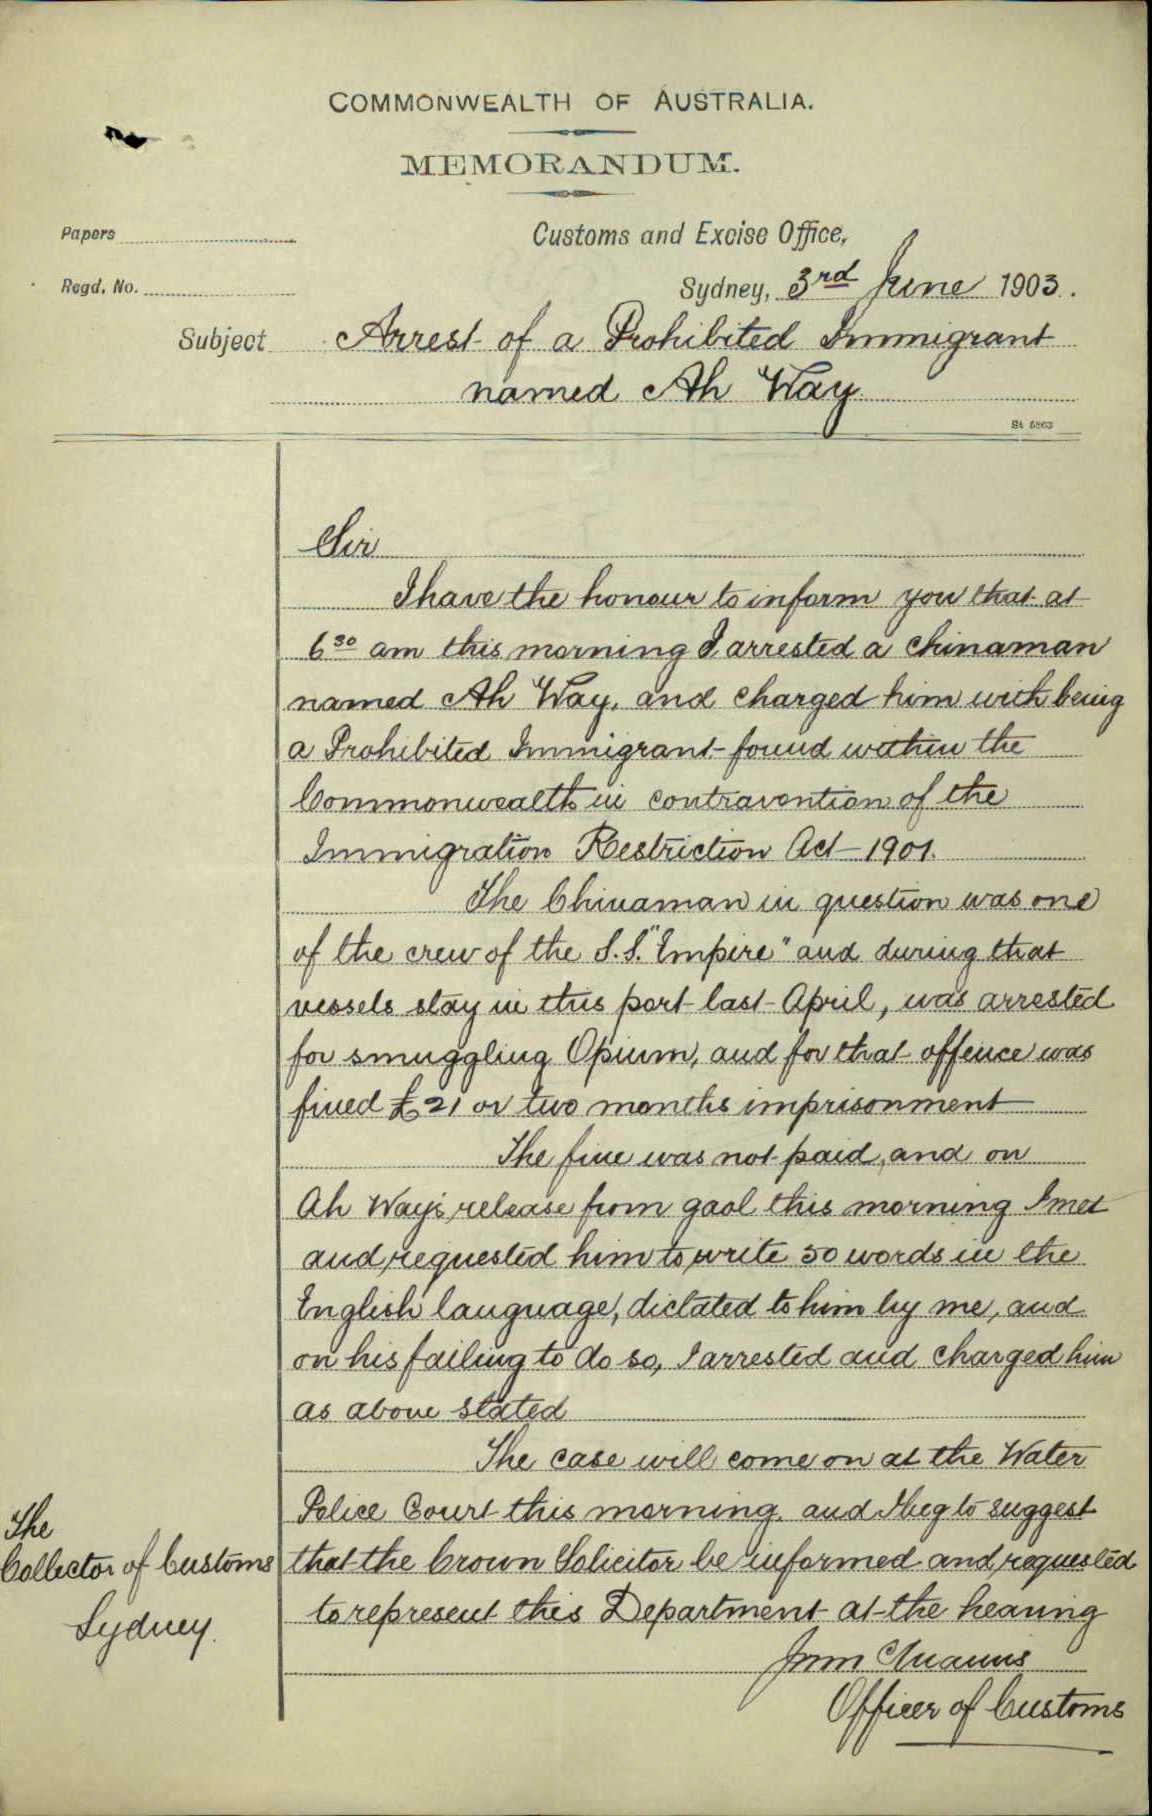 COMMONWEALTH OF AUSTRALIA.
MEMORANDUM.
Papers
Customs and Excise Office,
Regd. No.
Sydney, 3rd June 1903.
Subject Arrest of a Prohibited Immigrant
named Ah Way
St 5863
Sir
I have the honour to inform you that at
6 30 am this morning I arrested a Chinaman
named Ah Way, and charged him with being
a Prohibited Immigrant found within the
Commonwealth in contravention of the
Immigration Restriction Act 1901.
The Chinaman in question was one
of the crew of the S.S. "Empire" and during that
vessels stay in this port last April, was arrested
for smuggling Opium, and for that offence was
fined £21 or two months imprisonment
The fine was not paid, and on
Ah Way's release from gaol this morning I met
and requested him to write 50 words in the
English language, dictated to him by me, and
on his failing to do so, I arrested and charged him
as above stated
The case will come on at the Water
Police Court this morning, and I beg to suggest
that the Crown Solicitor be informed and requested
to represent this Department at the hearing
Officer of Customs
The
Collector of Customs
Sydney.